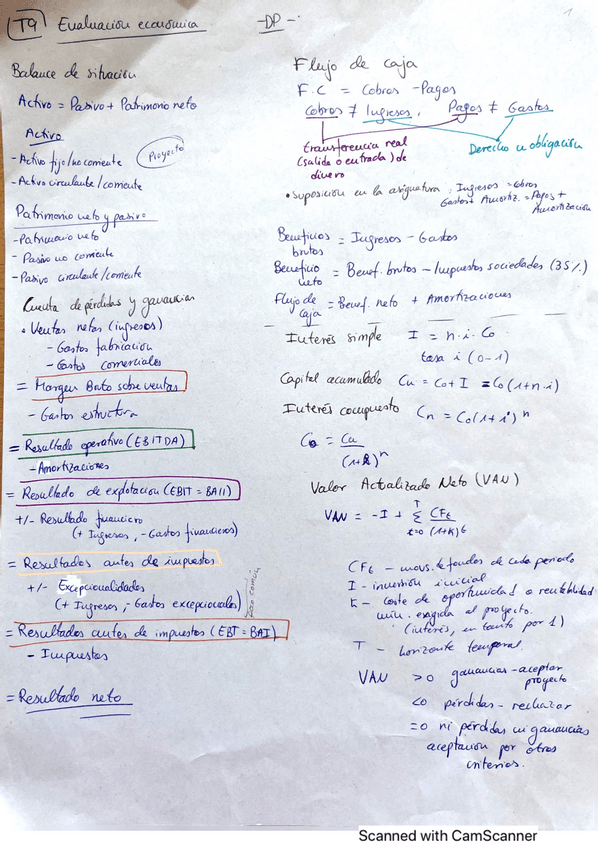 T9 Evaluación económica -DP-
1
Balance de situación
Activo = Pasivo + Patrimonio neto
Activo
- Activo fijo/no corriente
Proyecto
- Activo circulante/corriente
Patrimonio neto y pasivo
- Patrimonio neto
- Pasivo no corriente
- Pasivo circulante/corriente
Cuenta de pérdidas y ganancias
• Ventas netas (ingresos)
- Gastos fabricación
- Gastos comerciales
= Margen Bruto sobre ventas
- Gastos estructura
= Resultado operativo (EBITDA)
- Amortizaciones
= Resultado de explotación (EBIT = BAII)
+/- Resultado financiero
(+ Ingresos, - Gastos financieros)
= Resultados antes de impuestos
+/- Excepcionalidades
(+ Ingresos, - Gastos excepcionales)
poco común
= Resultados antes de impuestos (EBT = BAI)
- Impuestos
= Resultado neto
Flujo de caja
F.C = Cobros - Pagos
Cobros ≠ Ingresos, Pagos ≠ Gastos
transferencia real
(salida o entrada) de
dinero
Derecho u obligación
• Suposición en la asignatura: Ingresos = Cobros
Gastos + Amortiz. = Pagos +
Amortización
Beneficios
brutos = Ingresos - Gastos
Beneficio
neto = Benef. brutos - Impuestos sociedades (35%)
Flujo de
caja = Benef. neto + Amortizaciones
Interés simple I = n·i·Co
tasa i (0-1)
Capital acumulado Cn = Co + I = Co(1+n·i)
Interés compuesto Cn = Co(1+i)^n
Co = Cn
(1+k)^n
Valor Actualizado Neto (VAN)
VAN = -I + Σ CFt
T
t=0 (1+k)^t
CFt - movs. de fondos de cada periodo
I - inversión inicial
k - coste de oportunidad o rentabilidad
mín. exigida al proyecto.
(interés, en tanto por 1)
T - horizonte temporal
VAN >0 ganancias - aceptar
proyecto
<0 pérdidas - rechazar
=0 ni pérdidas ni ganancias
aceptación por otros
criterios.
Scanned with CamScanner